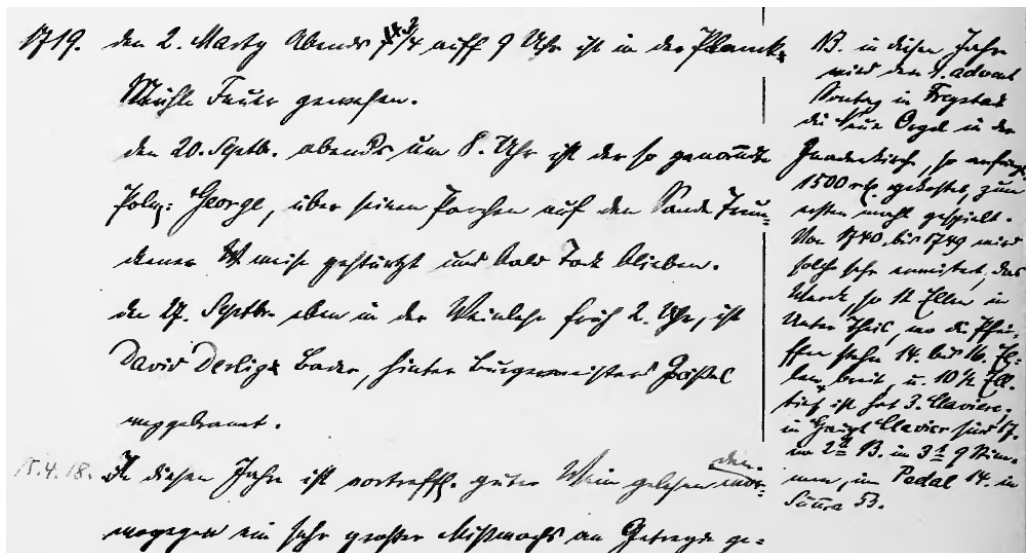 1719. den 2. Marty Abends 3/4 auff 9 Uhr ist in der Planck-
Mühle Feuer gewesen.
den 20. Septbr. abends um 8. Uhr ist der so genandte
Poln: George, über seinen Parchen auf den Sande Trun-
ckener Weise gestürtzt und bald Todt blieben.
den 27. Septbr. eben in der Weinlese früh 2. Uhr, ist
David Derlig Bader, hinter Burgermeisters
weggebrannt.
15.4.18. In diesen Jahre ist vortreffl. guter Wein gelesen worden.
wogegen ein sehr großer Mißwachs an Getreyde ge-
NB. in diesen Jahre
wird den 1. advent
Sontag in Freystadt
die Neue Orgel in der
Gnadenkirche, so anfangs
1500 rtl. gekostet, zum
ersten mahl gespielt.
Von 1740 bis 1749 wird
solche sehr erweitert, das
Werck, so 12 Ellen in
Unter Theil, wo die Pfei-
ffen stehn 14. bis 16. El-
len breit, u. 10 1/2 Ell.
tief ist hat 3. Claviere,
in Haupt Clavier sind 17.
im 2t 13. im 3t 9 Stim-
men, im Pedal 14. in
Suma 53.